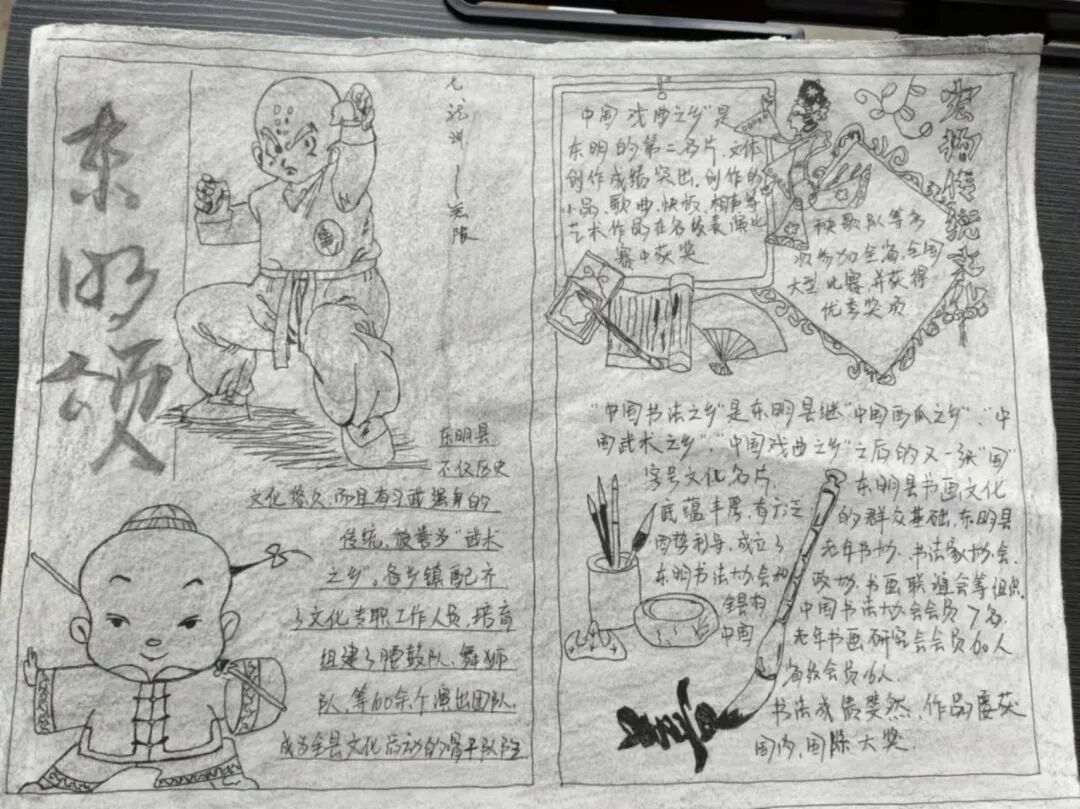 东明颂
东明县
不仅历史
文化悠久,而且有习武强身的
传统,被誉为"武术
之乡"。各乡镇配齐
了文化专职工作人员,培育
组建了腰鼓队、舞狮
队、等60余个演出团队,
成为全县文化活动的骨干队伍
中国戏曲之乡"是
东明的第二名片,文体
创作成绩突出,创作的
小品、歌曲、快板、相声等
艺术作品在各级表演比
赛中获奖
弘扬传统文化
秧歌队等多
次参加全省、全国
大型比赛,并获得
优秀奖项
"中国书法之乡"是东明县继"中国西瓜之乡"、"中
国武术之乡"、"中国戏曲之乡"之后的又一张"国"
字号文化名片。
东明县书画文化
底蕴丰厚,有广泛
的群众基础,东明县
因势利导,成立了
老年书协、书法家协会、
东明书法协会和
政协、书画联谊会等组织。
全县有
中国书法协会会员7名,
中国
老年书画研究会会员60人
省级会员16人
书法成绩斐然,作品屡获
国内、国际大奖.